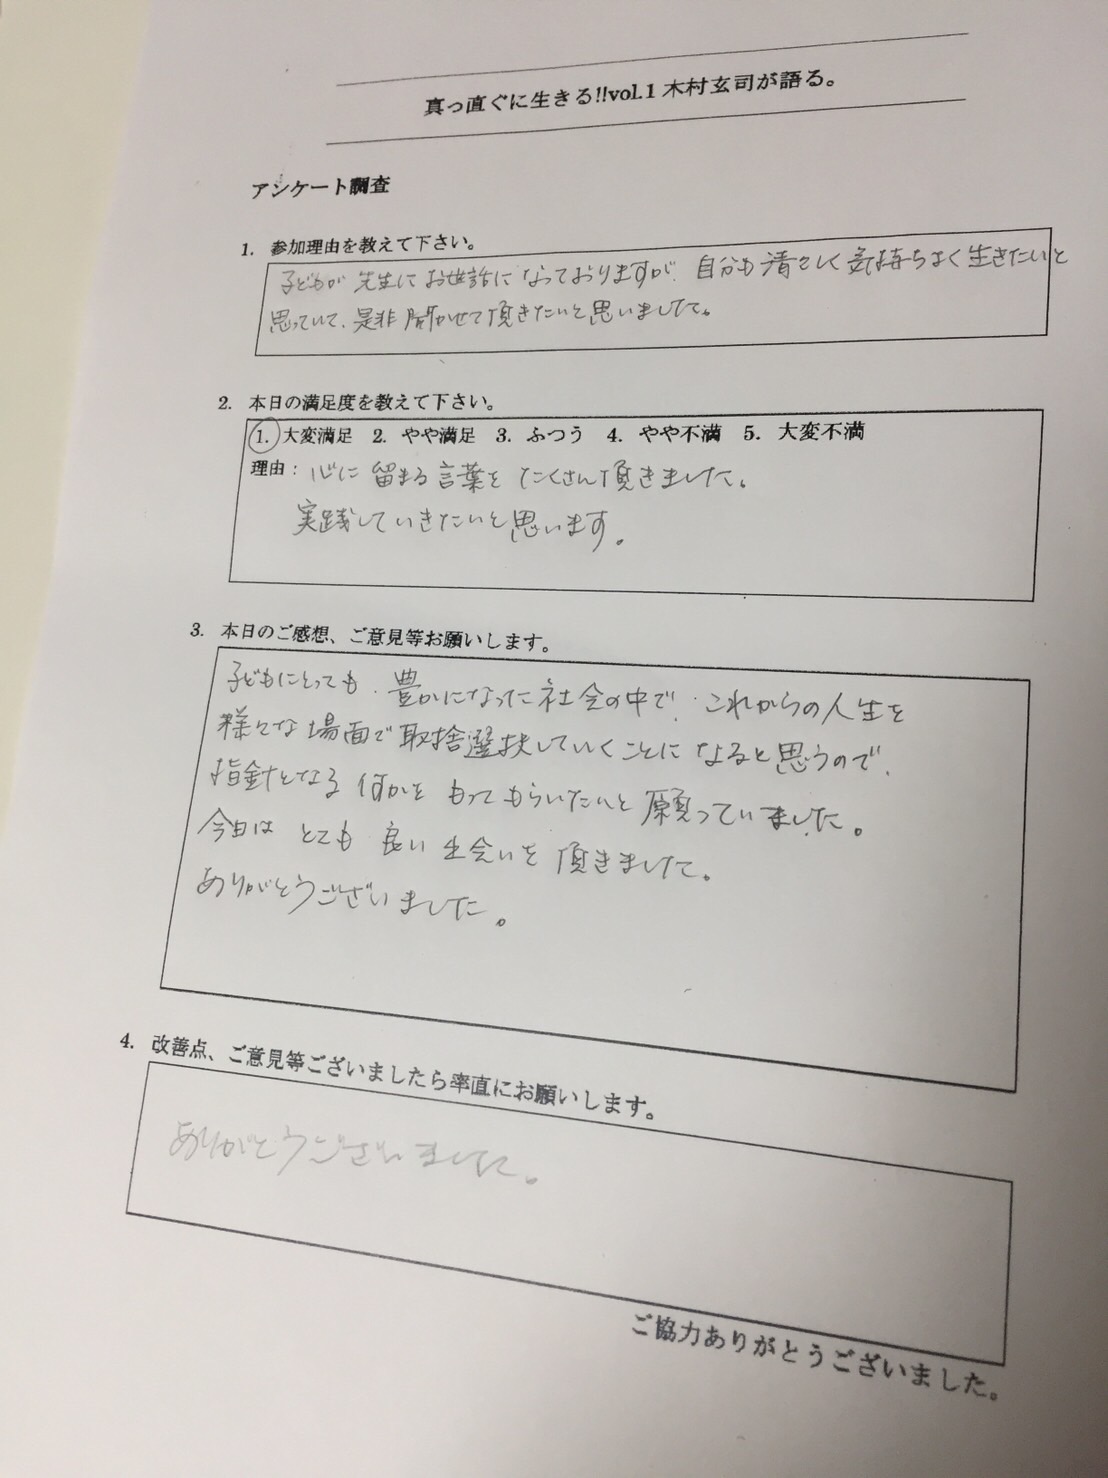 真っ直ぐに生きる!!vol.1 木村玄司が語る。
アンケート調査
1. 参加理由を教えて下さい。
子どもが先生にお世話になっておりますが、自分も清々しく気持ちよく生きたいと
思っていて、是非聞かせて頂きたいと思いました。
2. 本日の満足度を教えて下さい。
1. 大変満足 2. やや満足 3. ふつう 4. やや不満 5. 大変不満
理由：心に留まる言葉をたくさん頂きました。
実践していきたいと思います。
3. 本日のご感想、ご意見等お願いします。
子どもにとっても、豊かになった社会の中で、これからの人生を
様々な場面で取捨選択していくことになると思うので、
指針となる何かをもってもらいたいと願っていました。
今日はとても良い出会いを頂きました。
ありがとうございました。
4. 改善点、ご意見等ございましたら率直にお願いします。
ありがとうございました。
ご協力ありがとうございました。